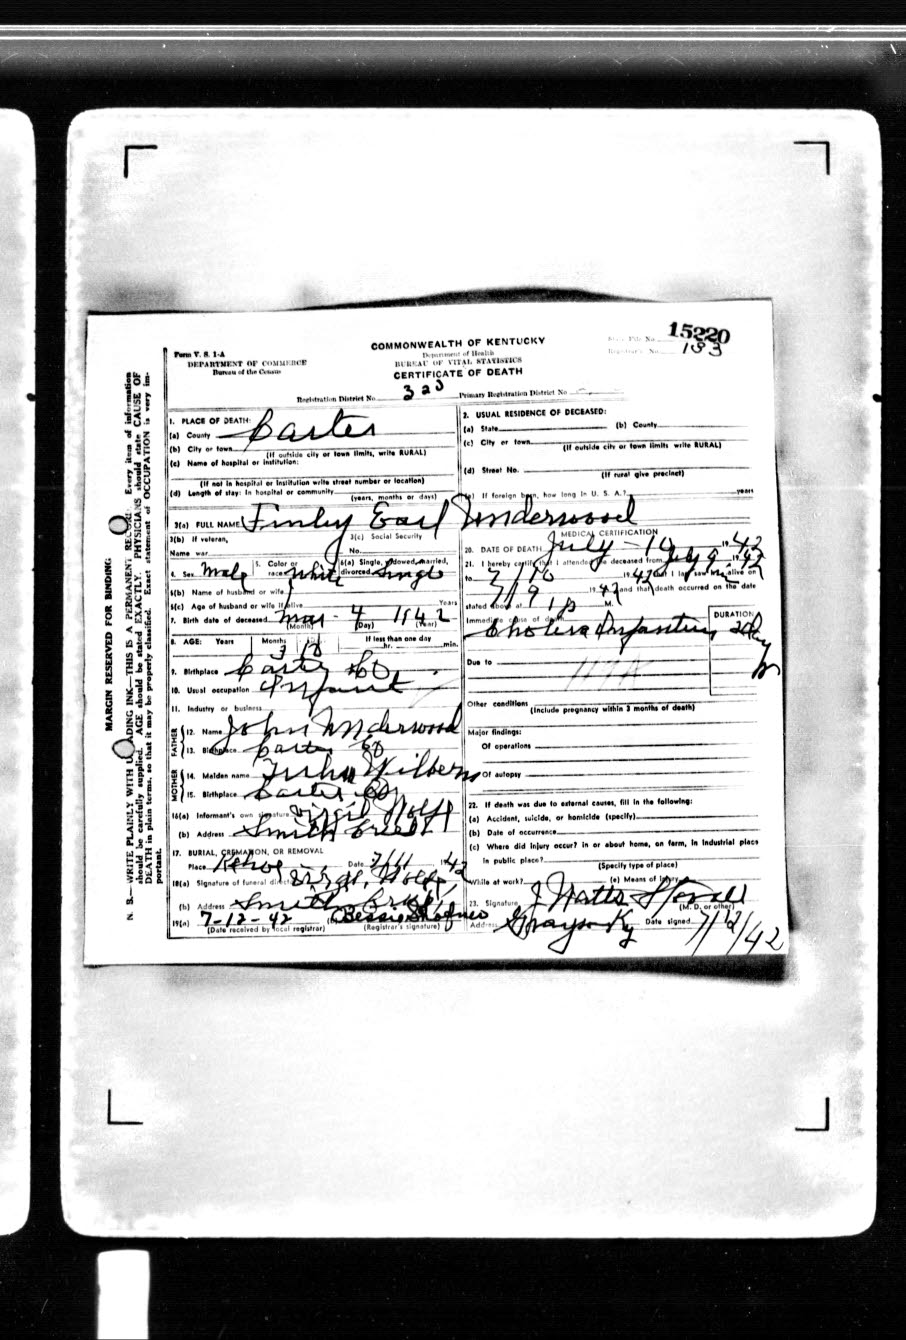 15220
COMMONWEALTH OF KENTUCKY
Form V. S. 1-A
DEPARTMENT OF COMMERCE
Bureau of the Census
Department of Health
BUREAU OF VITAL STATISTICS
CERTIFICATE OF DEATH
Registrar's No. 183
Registration District No. 320
Primary Registration District No.
MARGIN RESERVED FOR BINDING
N. B.—WRITE PLAINLY WITH ADING INK—THIS IS A PERMANENT REC Every item of information
should be carefully supplied. AGE should be stated EXACTLY. PHYSICIANS should state CAUSE OF
DEATH in plain terms, so that it may be properly classified. Exact statement of OCCUPATION is very im-
portant.
1. PLACE OF DEATH:
(a) County Carter
(b) City or town
(If outside city or town limits, write RURAL)
(c) Name of hospital or institution:
(If not in hospital or institution write street number or location)
(d) Length of stay: In hospital or community
(years, months or days)
2. USUAL RESIDENCE OF DECEASED:
(a) State (b) County
(c) City or town
(If outside city or town limits write RURAL)
(d) Street No.
(If rural give precinct)
(e) If foreign born, how long in U. S. A.? years
3(a) FULL NAME Finley Earl Underwood
3(b) If veteran,
Name war
3(c) Social Security
No.
4. Sex Male
5. Color or race White
6(a) Single, widowed, married, divorced Single
6(b) Name of husband or wife
6(c) Age of husband or wife if alive Years
7. Birth date of deceased Mar - 4 1942
(Month) (Day) (Year)
8. AGE: Years Months If less than one day
3 hr. min.
9. Birthplace Carter Co
10. Usual occupation Infant
11. Industry or business
FATHER
12. Name John Underwood
13. Birthplace Carter Co
MOTHER
14. Maiden name Wilburn
15. Birthplace Carter Co
16(a) Informant's own signature Virgil Wolfe
(b) Address Smith Creek
17. BURIAL, CREMATION, OR REMOVAL
Place Kehoe Date 7/11 1942
18(a) Signature of funeral director Virgil Wolfe
(b) Address Smith Creek
19(a) 7-12-42 Bessie
(Date received by local registrar) (Registrar's signature)
MEDICAL CERTIFICATION
20. DATE OF DEATH July - 10 1942
21. I hereby certify that I attended the deceased from July 9 1942
to 7/10 1942 that I last saw him alive on
7/9 1942 and that death occurred on the date
stated above at 1 P M.
Immediate cause of death
Cholera Infantum
DURATION
2 days
Due to
119A
Other conditions
(Include pregnancy within 3 months of death)
Major findings:
Of operations
Of autopsy
22. If death was due to external causes, fill in the following:
(a) Accident, suicide, or homicide (specify)
(b) Date of occurrence
(c) Where did injury occur? in or about home, on farm, in industrial place
in public place?
(Specify type of place)
While at work? (e) Means of injury
23. Signature J Watts Stovall
(M. D. or other)
Address Grayson Ky Date signed 7/12/42